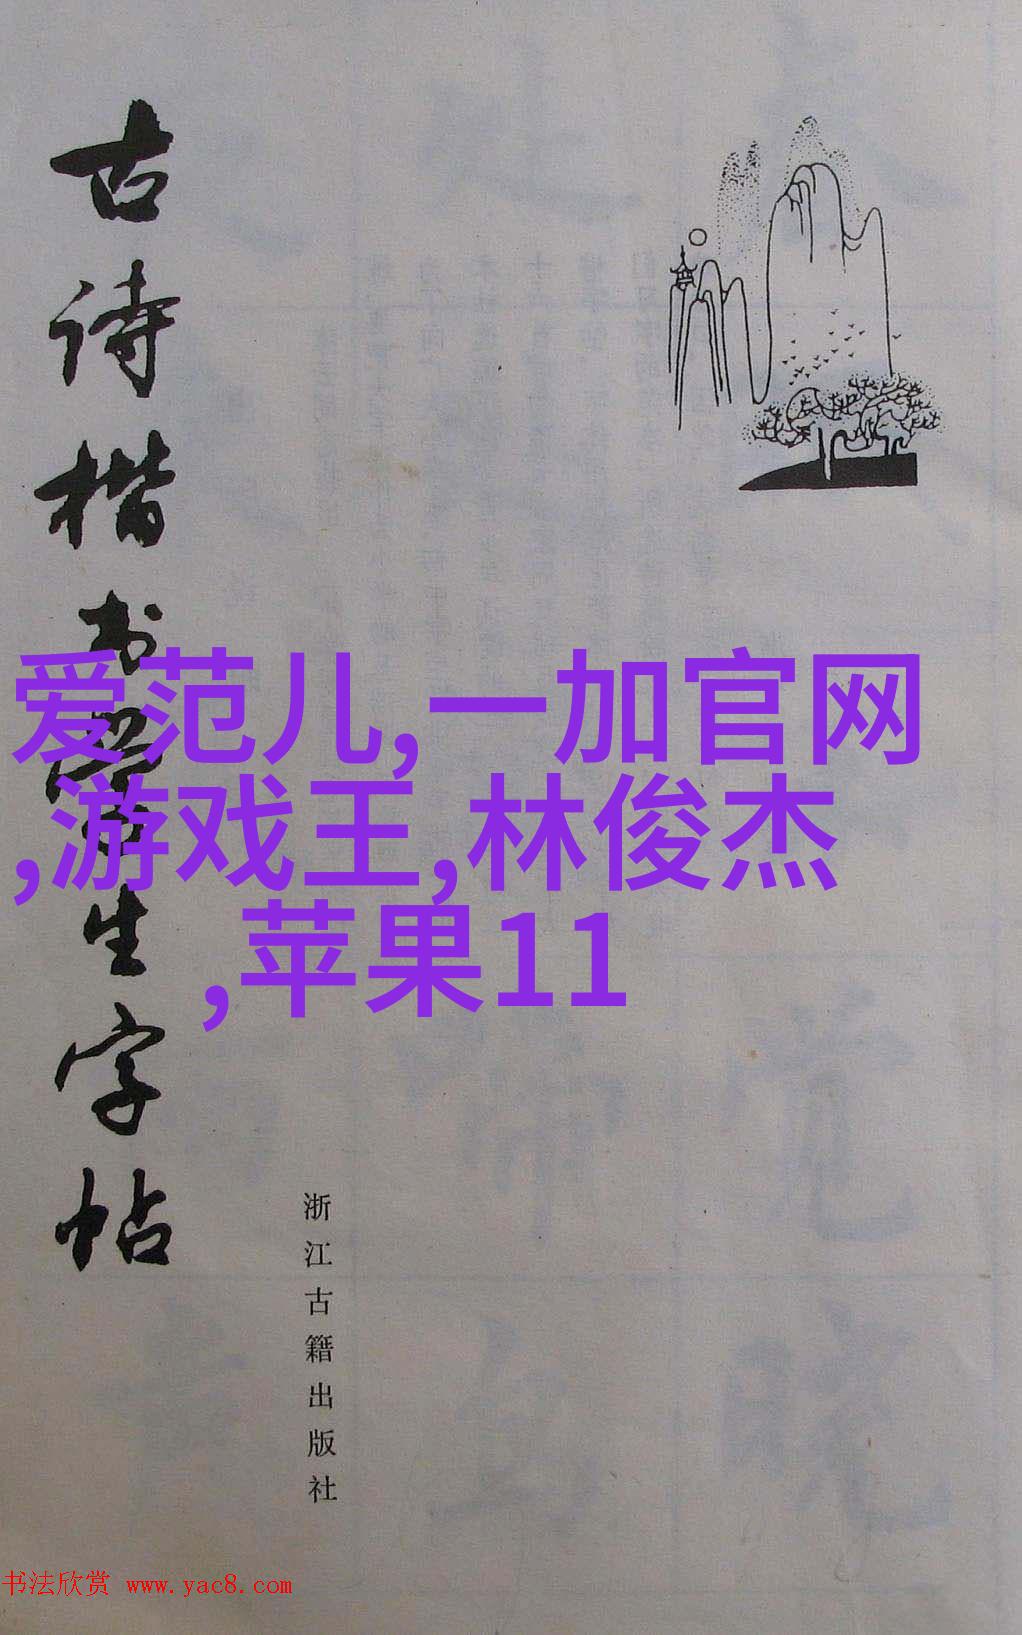 古诗楷书学生字帖
爱范儿,一加官网
,游戏王,林俊杰
,苹果11
浙江古籍出版社
书法欣赏 www.yac8.com